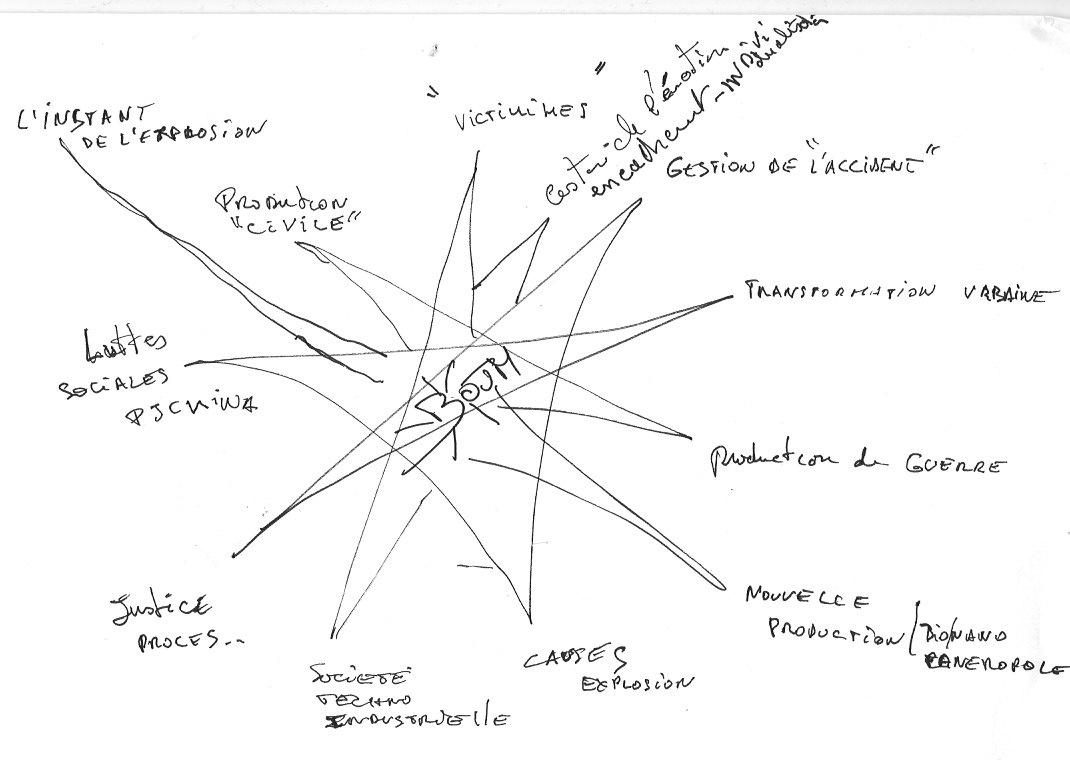 L'INSTANT
DE L'EXPLOSION
"VICTIMES"
de l'émotion
GESTION DE "L'ACCIDENT"
PRODUCTION
"CIVILE"
TRANSFORMATION URBAINE
Luttes
SOCIALES
BOUM
Production de GUERRE
Justice
PROCES...
SOCIETE
TECHNO
INDUSTRIELLE
CAUSES
EXPLOSION
NOUVELLE
PRODUCTION / BIO/NANO
CANEROPOLE